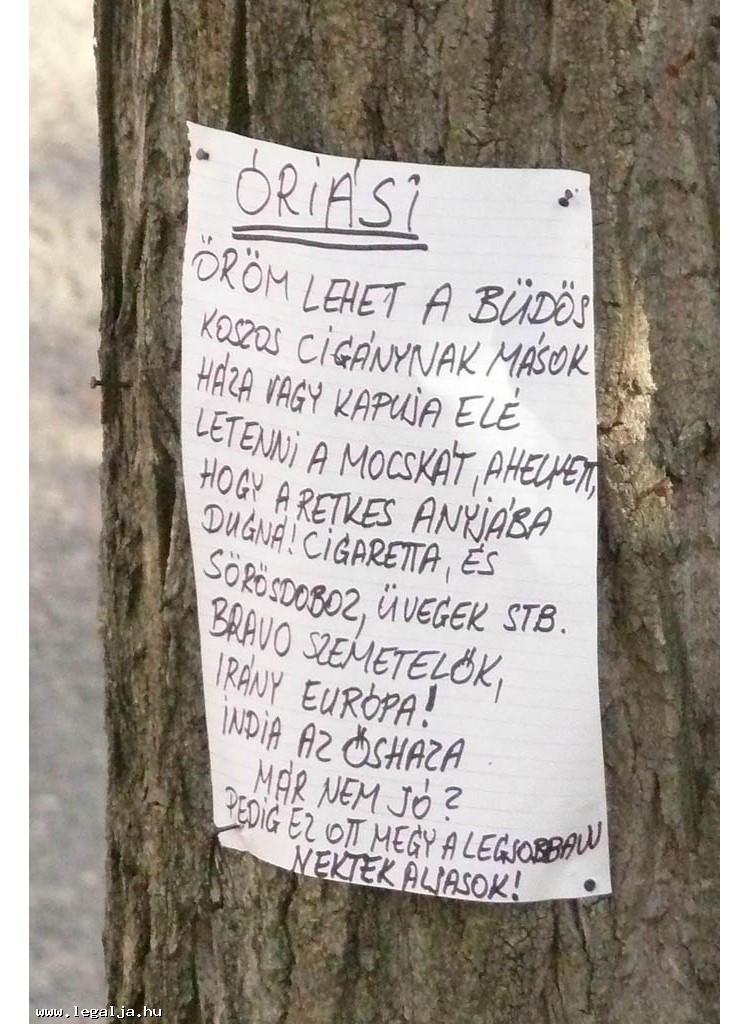 ÓRIÁSI
ÖRÖM LEHET A BÜDÖS
KOSZOS CIGÁNYNAK MÁSOK
HÁZA VAGY KAPUJA ELÉ
LETENNI A MOCSKÁT, AHELYETT,
HOGY A RETKES ANYJÁBA
DUGNÁ! CIGARETTA, ÉS
SÖRÖSDOBOZ, ÜVEGEK STB.
BRAVO SZEMETELŐK,
IRÁNY EURÓPA!
INDIA AZ ŐSHAZA
MÁR NEM JÓ?
PEDIG EZ OTT MEGY A LEGJOBBAN
NEKTEK ALJASOK!
www.legalja.hu